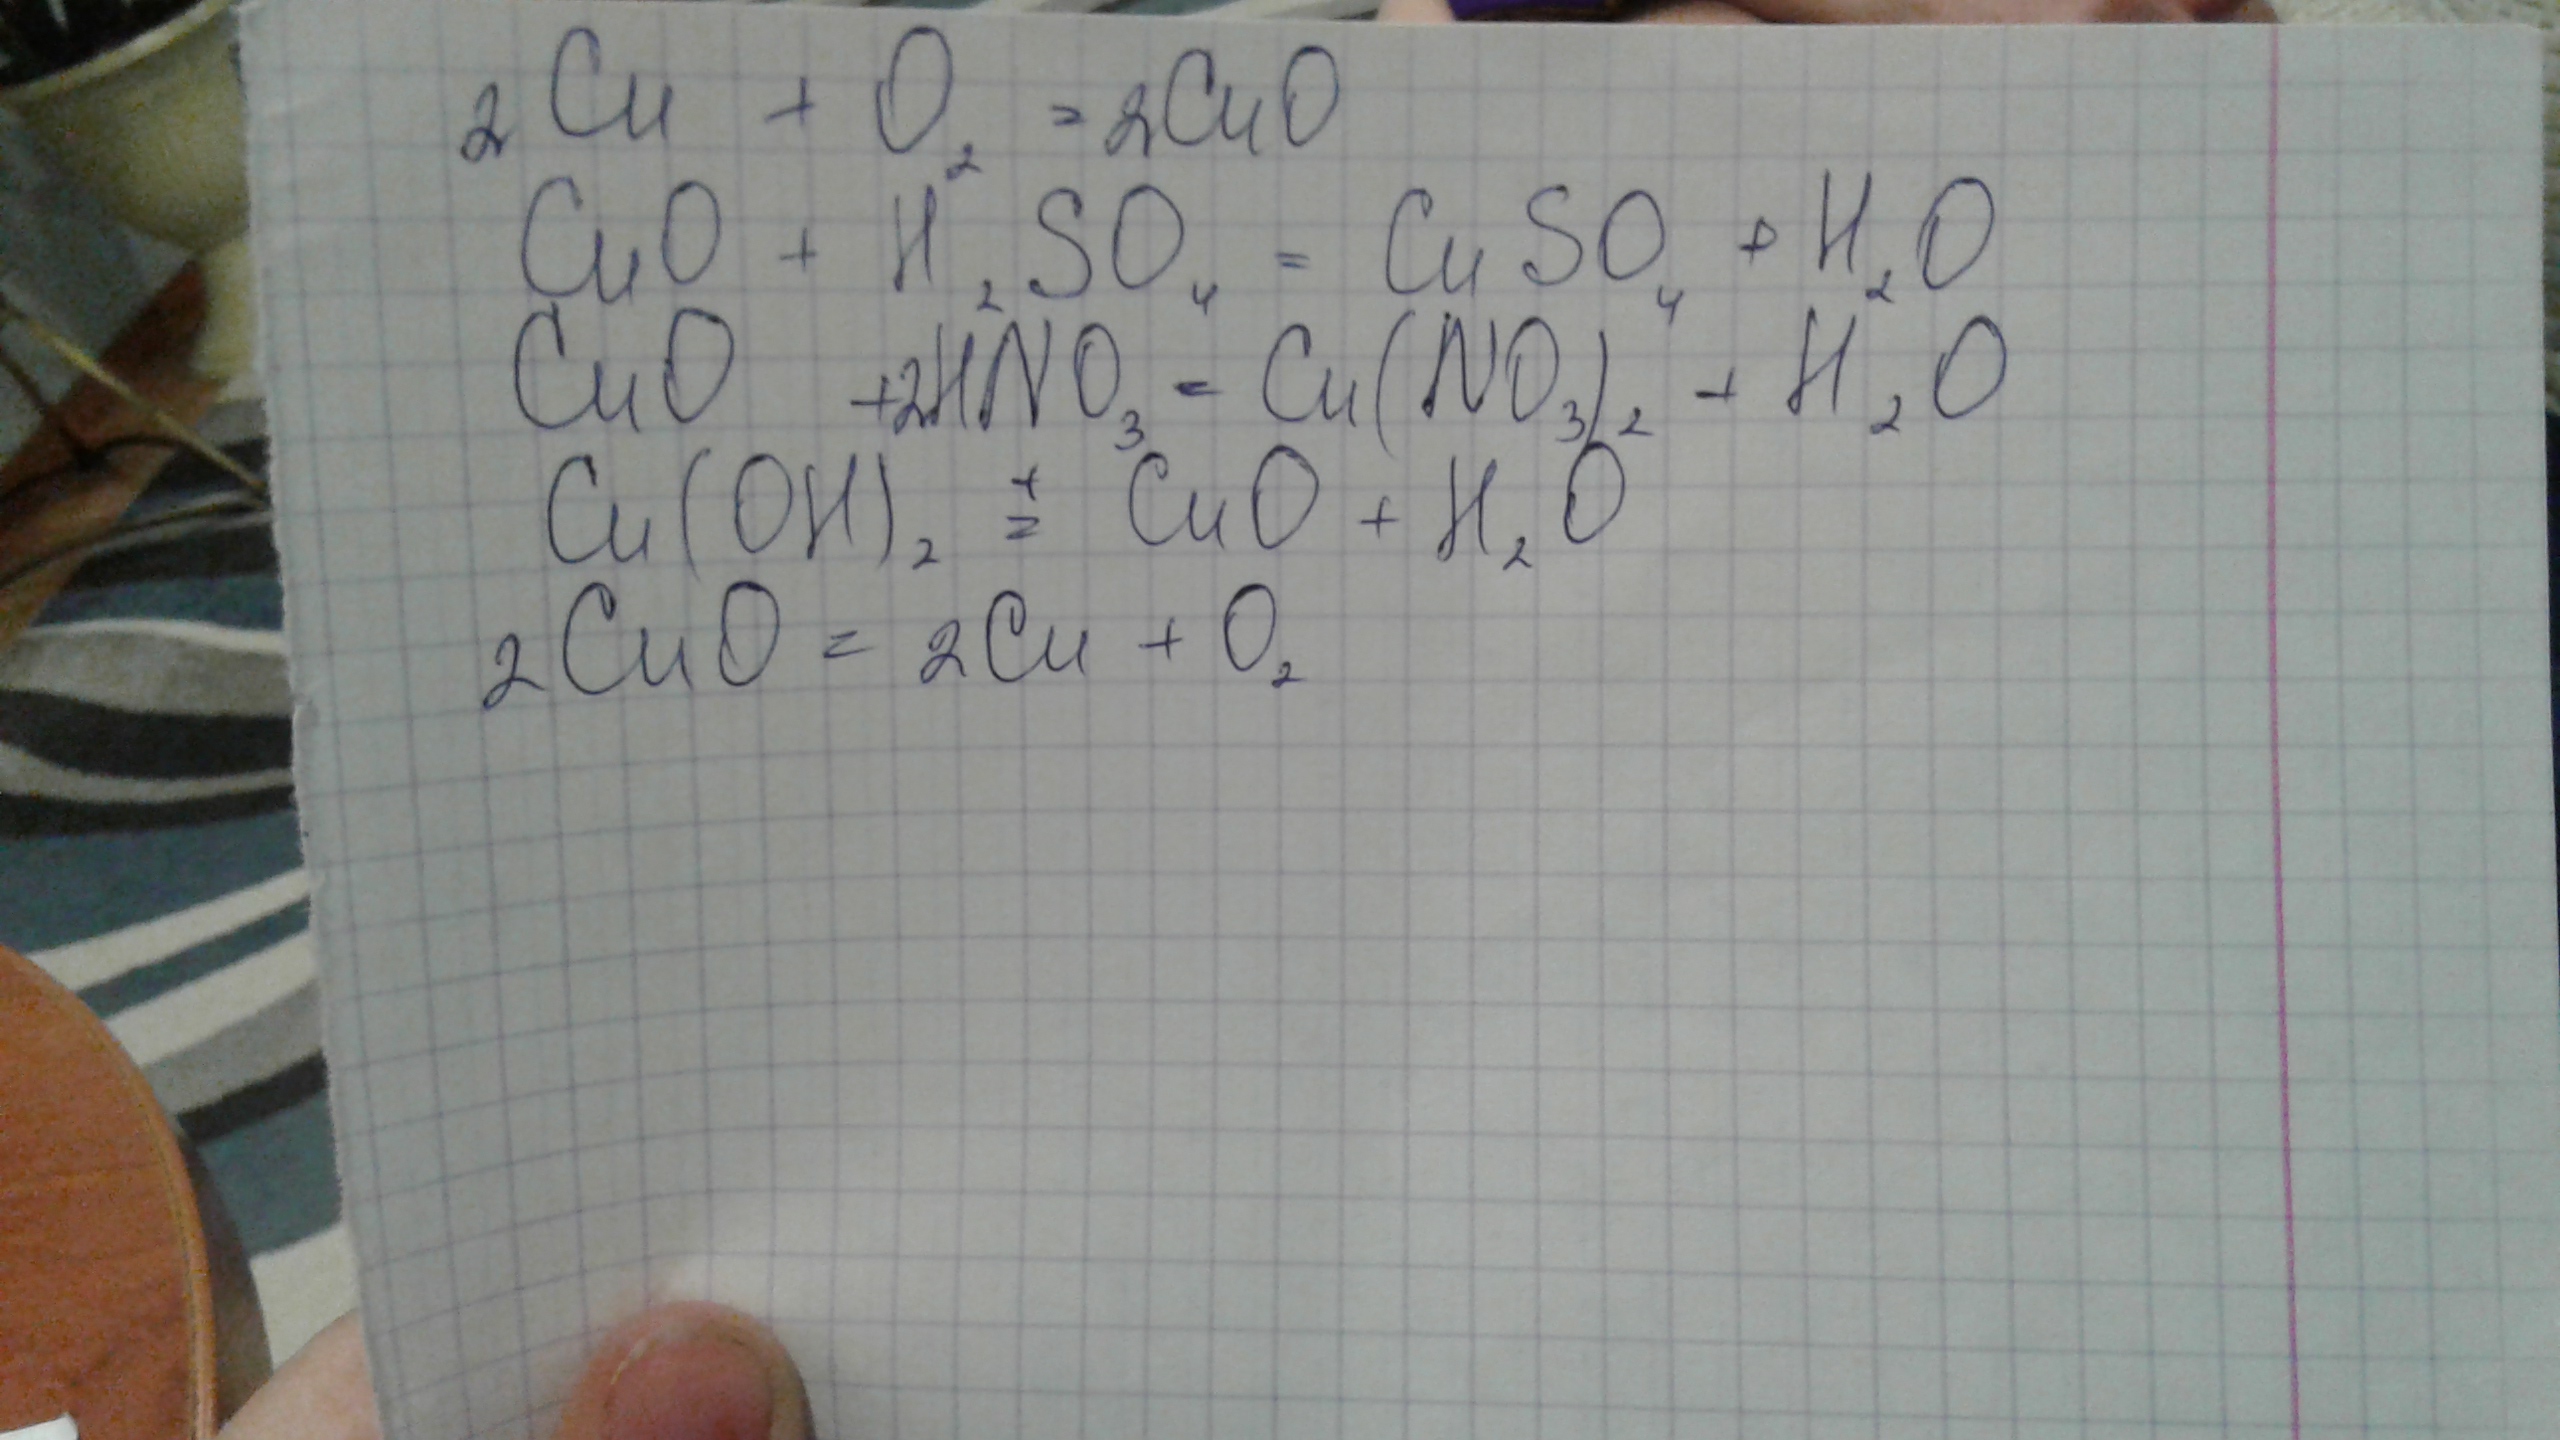 2Cu + O₂ = 2CuO
CuO + H₂SO₄ = CuSO₄ + H₂O
CuO +2HNO₃ = Cu(NO₃)₂ + H₂O
Cu(OH)₂ =ᵗ CuO + H₂O
2CuO = 2Cu + O₂